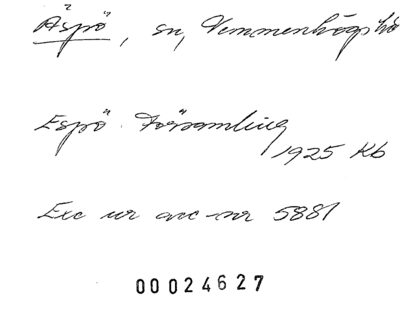 Äspö, sn, Vemmenhögs hd
Espö Församling
1925 Kb
Exc ur acc-nr 5881
00024627